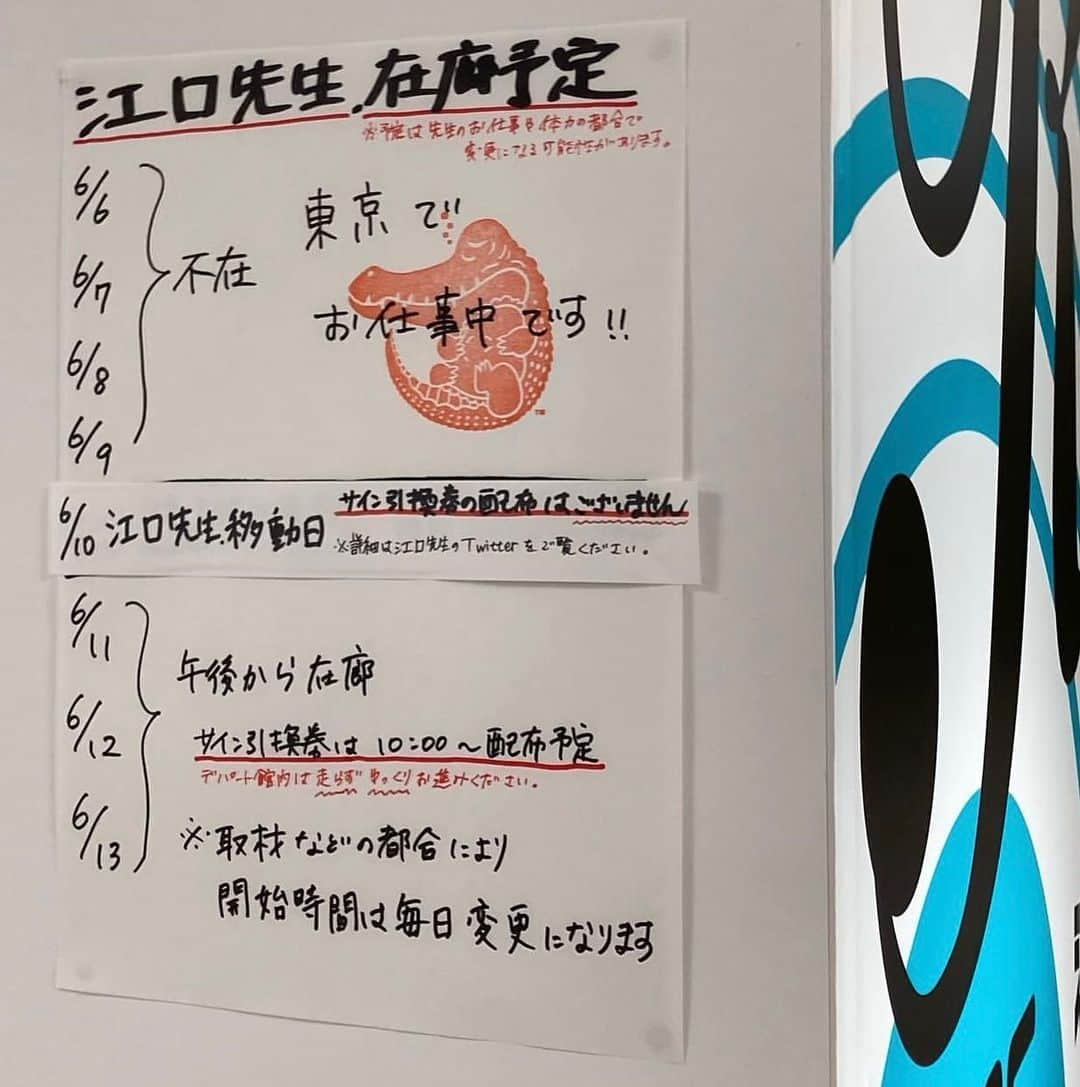 江口先生.在廊予定
※予定は先生のお仕事や体力の都合で
変更になる可能性があります。
6/6
6/7
6/8
6/9
不在
東京で
お仕事中です!!
TM
6/10 江口先生.移動日
サイン引換券の配布はございません
※詳細は江口先生のTwitterをご覧ください。
6/11
6/12
6/13
午後から在廊
サイン引換券は 10:00〜配布予定
デパート館内は走らずゆっくりお進みください。
※取材などの都合により
開始時間は毎日変更になります